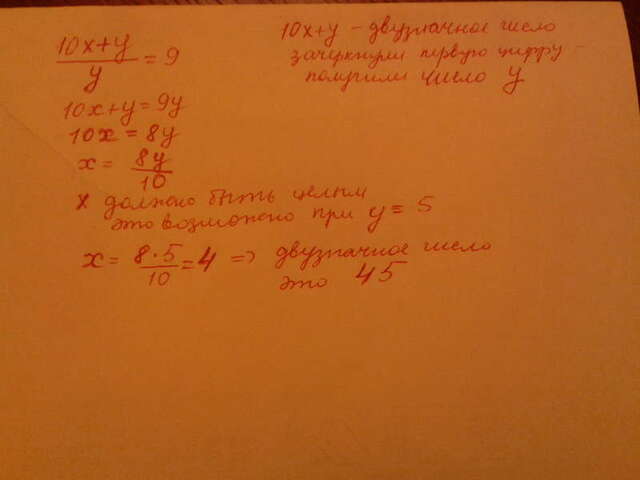 10x+y - двузначное число
зачеркнули первую цифру -
получили число y
10x+y
y
= 9
10x+y=9y
10x = 8y
x = 8y
10
x должно быть целым
это возможно при y = 5
x = 8·5
10
= 4 => двузначное число
это 45